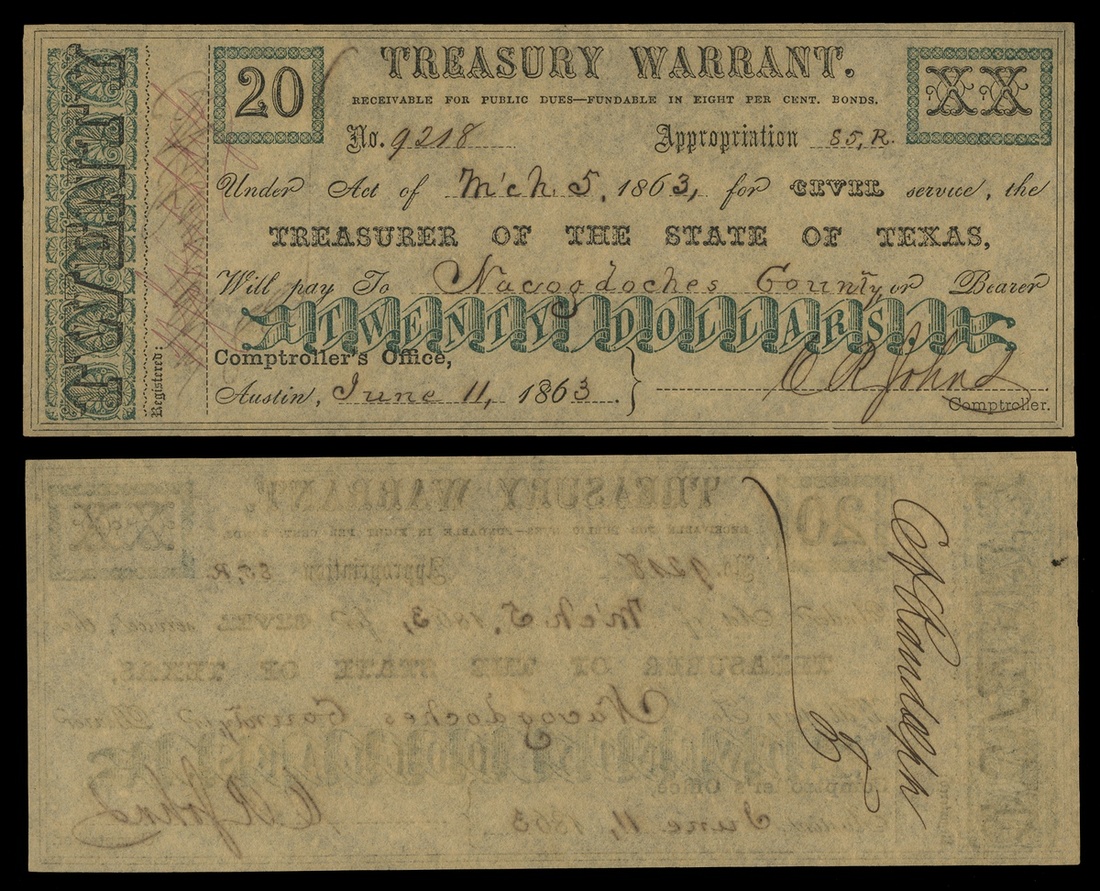 TWENTY
Registered:
20
TREASURY WARRANT.
XX
RECEIVABLE FOR PUBLIC DUES—FUNDABLE IN EIGHT PER CENT. BONDS.
No. 9218 Appropriation 85, R.
Under Act of M'ch 5, 1863, for CIVIL service, the
TREASURER OF THE STATE OF TEXAS,
Will pay To Nacogdoches County or Bearer
TWENTY DOLLARS.
Comptroller's Office,
Austin, June 11, 1863
C R Johns
Comptroller.
C H Randolph